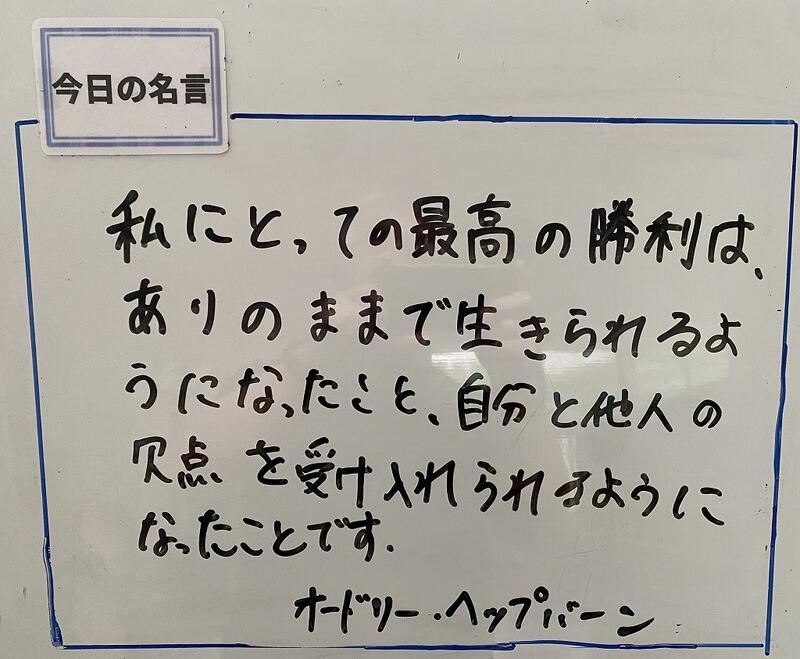 今日の名言
私にとっての最高の勝利は、
ありのままで生きられるよ
うになったこと、自分と他人の
欠点を受け入れられるように
なったことです.
オードリー・ヘップバーン